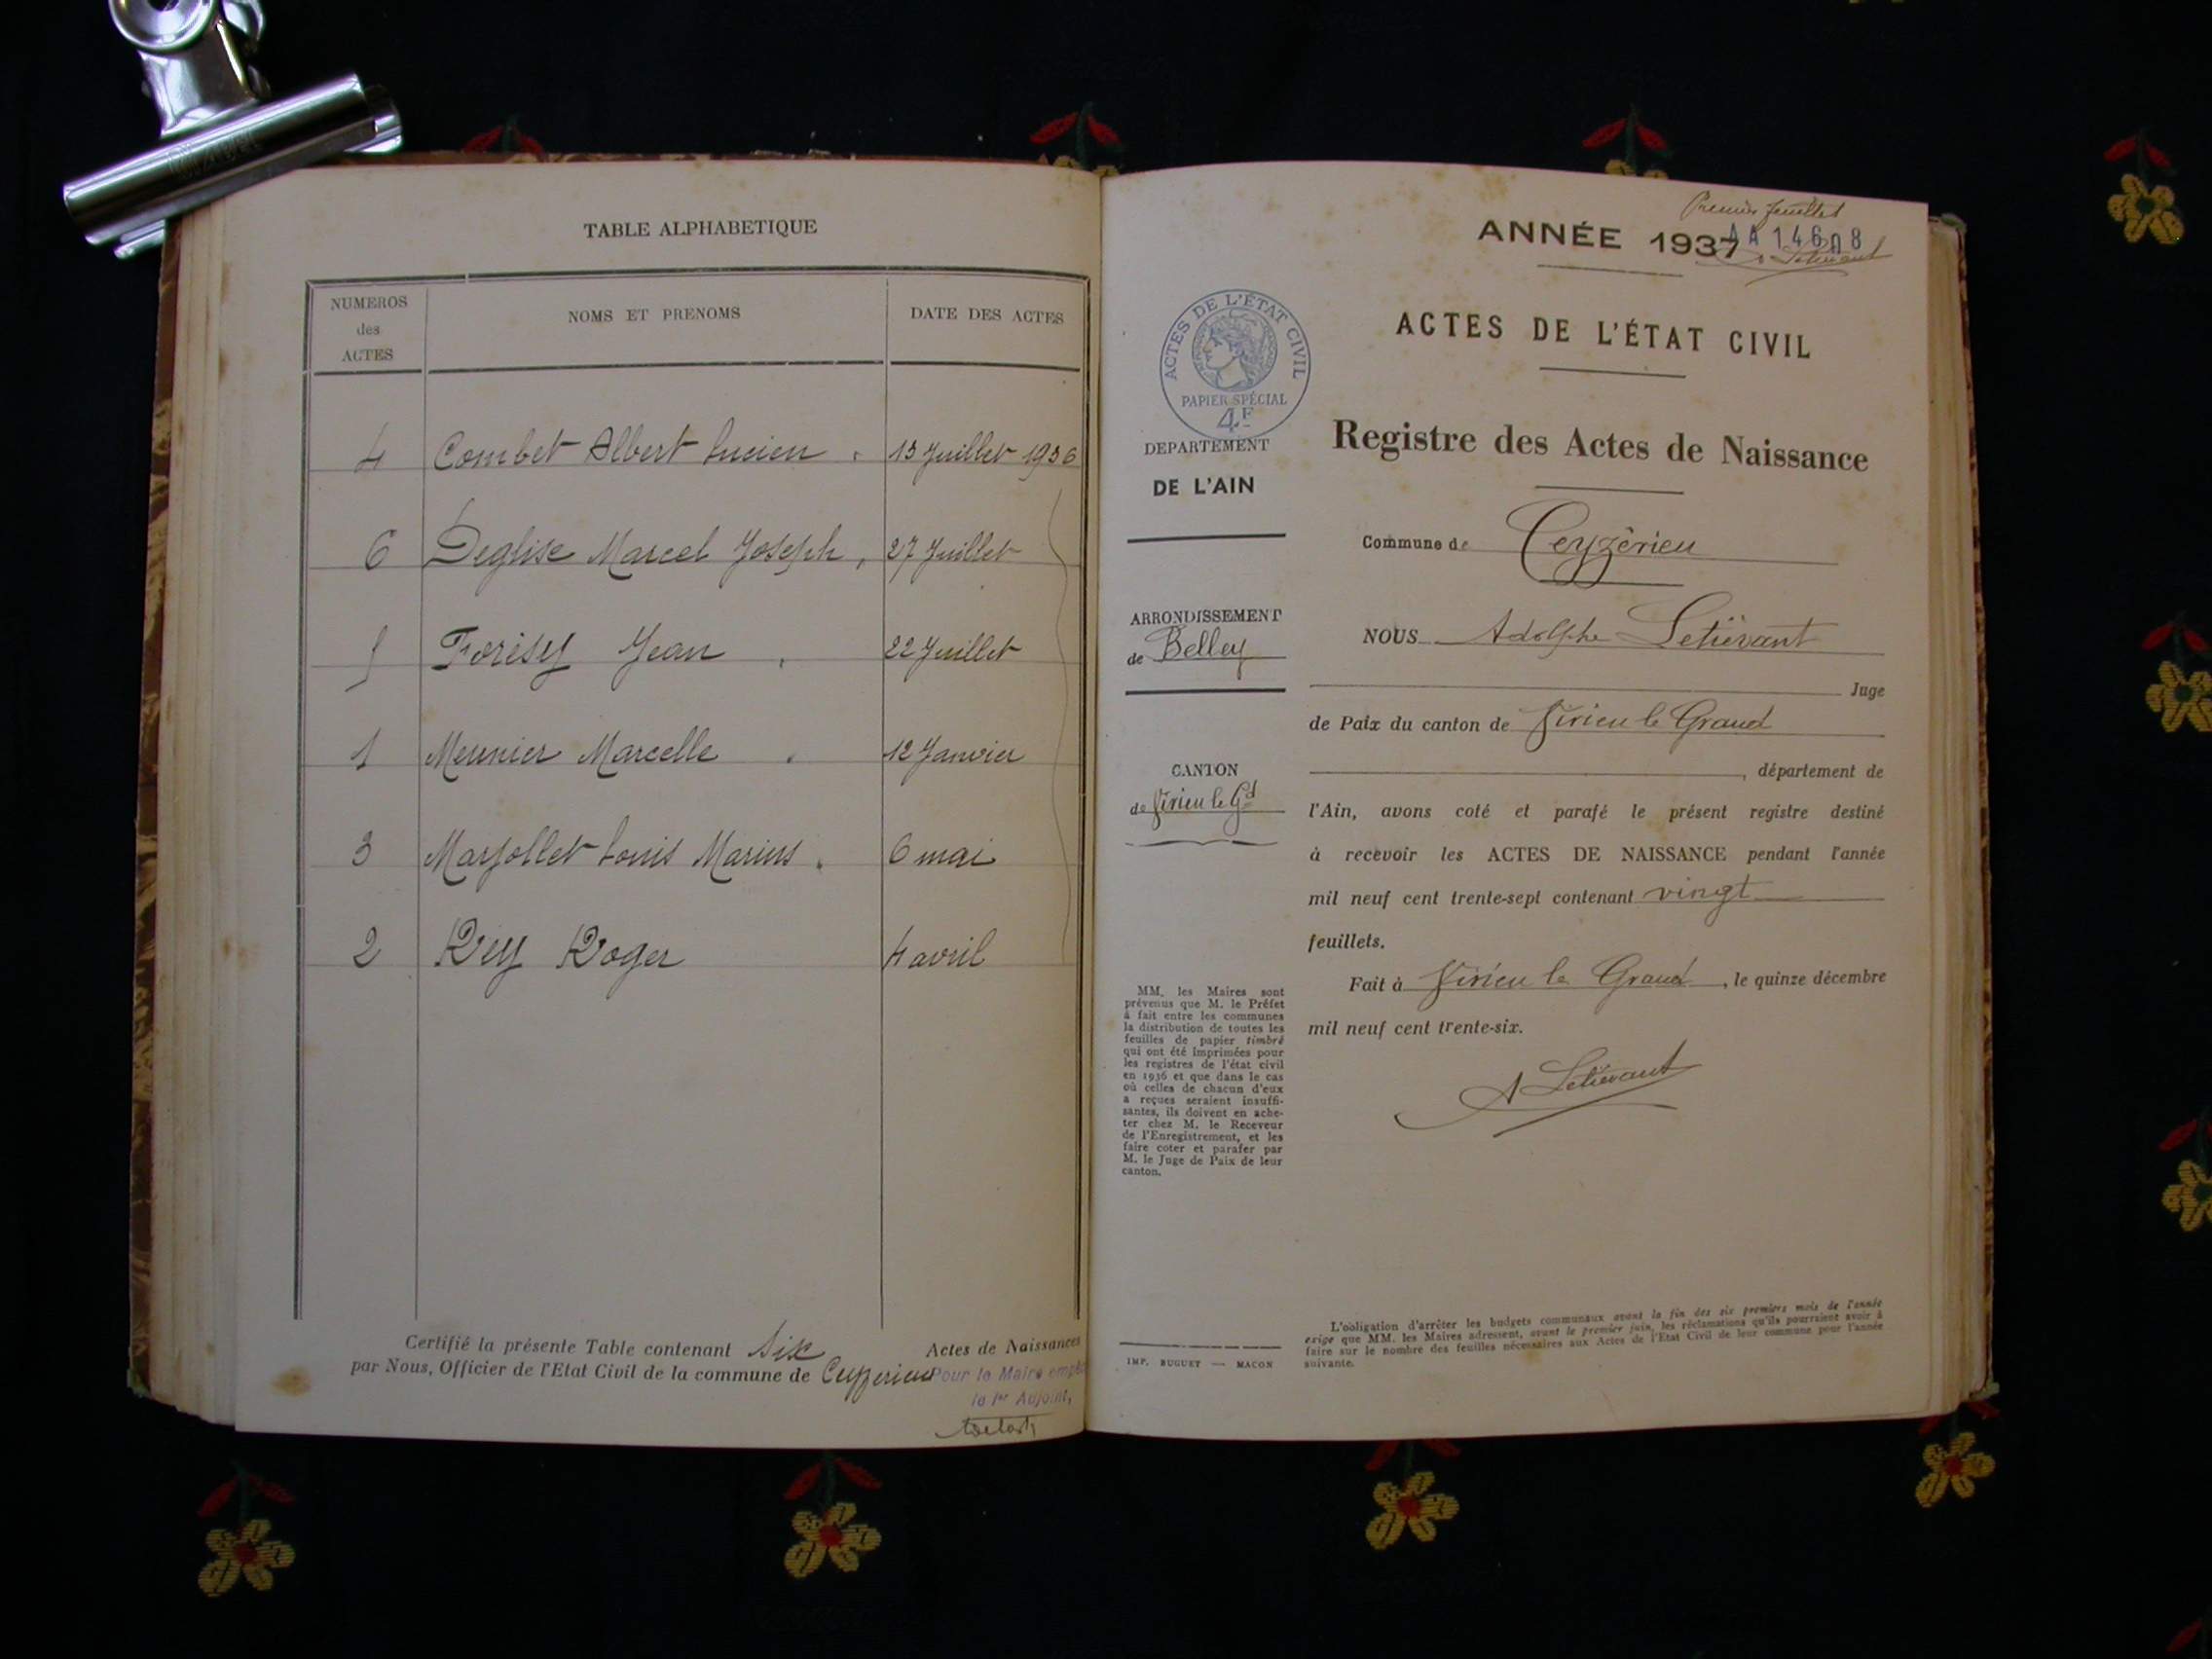 TABLE ALPHABETIQUE
NUMEROS
des
ACTES
NOMS ET PRENOMS
DATE DES ACTES
4 Combet Albert Lucien 13 Juillet 1936
6 Deglise Marcel Joseph, 27 Juillet
5 Forésy Jean 22 Juillet
1 Meunier Marcelle 12 Janvier
3 Marjollet Louis Marius 6 mai
2 Rey Roger 4 avril
Certifié la présente Table contenant six Actes de Naissances
par Nous, Officier de l'Etat Civil de la commune de Ceyzerieu
Pour le Maire
le 1er Adjoint,
Premier feuillet
ANNÉE 1937
A Letiévant
ACTES DE L'ÉTAT CIVIL
ACTES DE L'ÉTAT CIVIL
PAPIER SPÉCIAL
4F
DEPARTEMENT
DE L'AIN
ARRONDISSEMENT
de Belley
CANTON
de Virieu le Gd
MM. les Maires sont
prévenus que M. le Préfet
a fait entre les communes
la distribution de toutes les
feuilles de papier timbré
qui ont été imprimées pour
les registres de l'état civil
en 1936 et que dans le cas
où celles de chacun d'eux
a reçues seraient insuffi-
santes, ils doivent en ache-
ter chez M. le Receveur
de l'Enregistrement, et les
faire coter et parafer par
M. le Juge de Paix de leur
canton.
IMP. BUGUET — MACON
Registre des Actes de Naissance
Commune de Ceyzérieu
NOUS Adolphe Letiévant
Juge
de Paix du canton de Virieu le Grand
, département de
l'Ain, avons coté et parafé le présent registre destiné
à recevoir les ACTES DE NAISSANCE pendant l'année
mil neuf cent trente-sept contenant vingt
feuillets.
Fait à Virieu le Grand, le quinze décembre
mil neuf cent trente-six.
A Letiévant
L'obligation d'arrêter les budgets communaux avant la fin des six premiers mois de l'année
exige que MM. les Maires adressent, avant le premier juin, les réclamations qu'ils pourraient avoir à
faire sur le nombre des feuilles nécessaires aux Actes de l'Etat Civil de leur commune pour l'année
suivante.